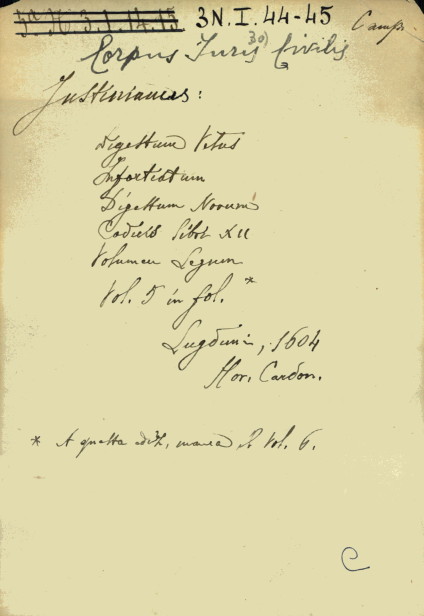 3N.I.44-45
Corpus Juris Civilis
Justinianus:
Digestum Vetus
Infortiatum
Digestum Novum
Codicis Libri XII
Volumen Legum
Vol. 5 in fol. *
Lugduni, 1604
Hor. Cardon.
* A questa ediz. manca il Vol. 6.
C